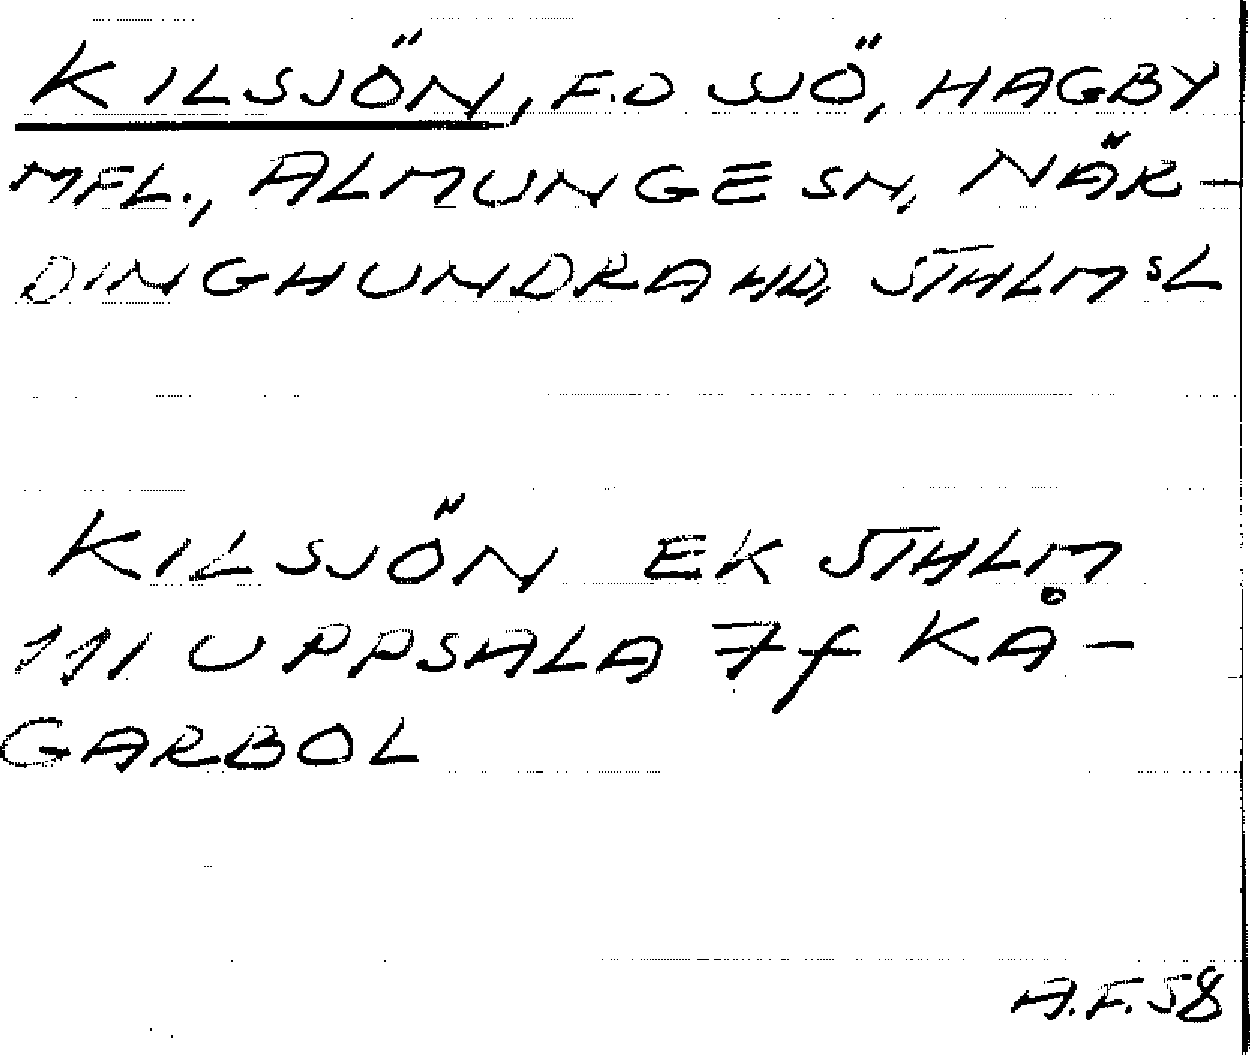 KILSJÖN, F.D SJÖ, HAGBY
MFL., ALMUNGE SN, NÄR-
DINGHUNDRA HD, STHLMSL
KILSJÖN EK STHLM
111 UPPSALA 7f KÅ-
GARBOL
A.F.58